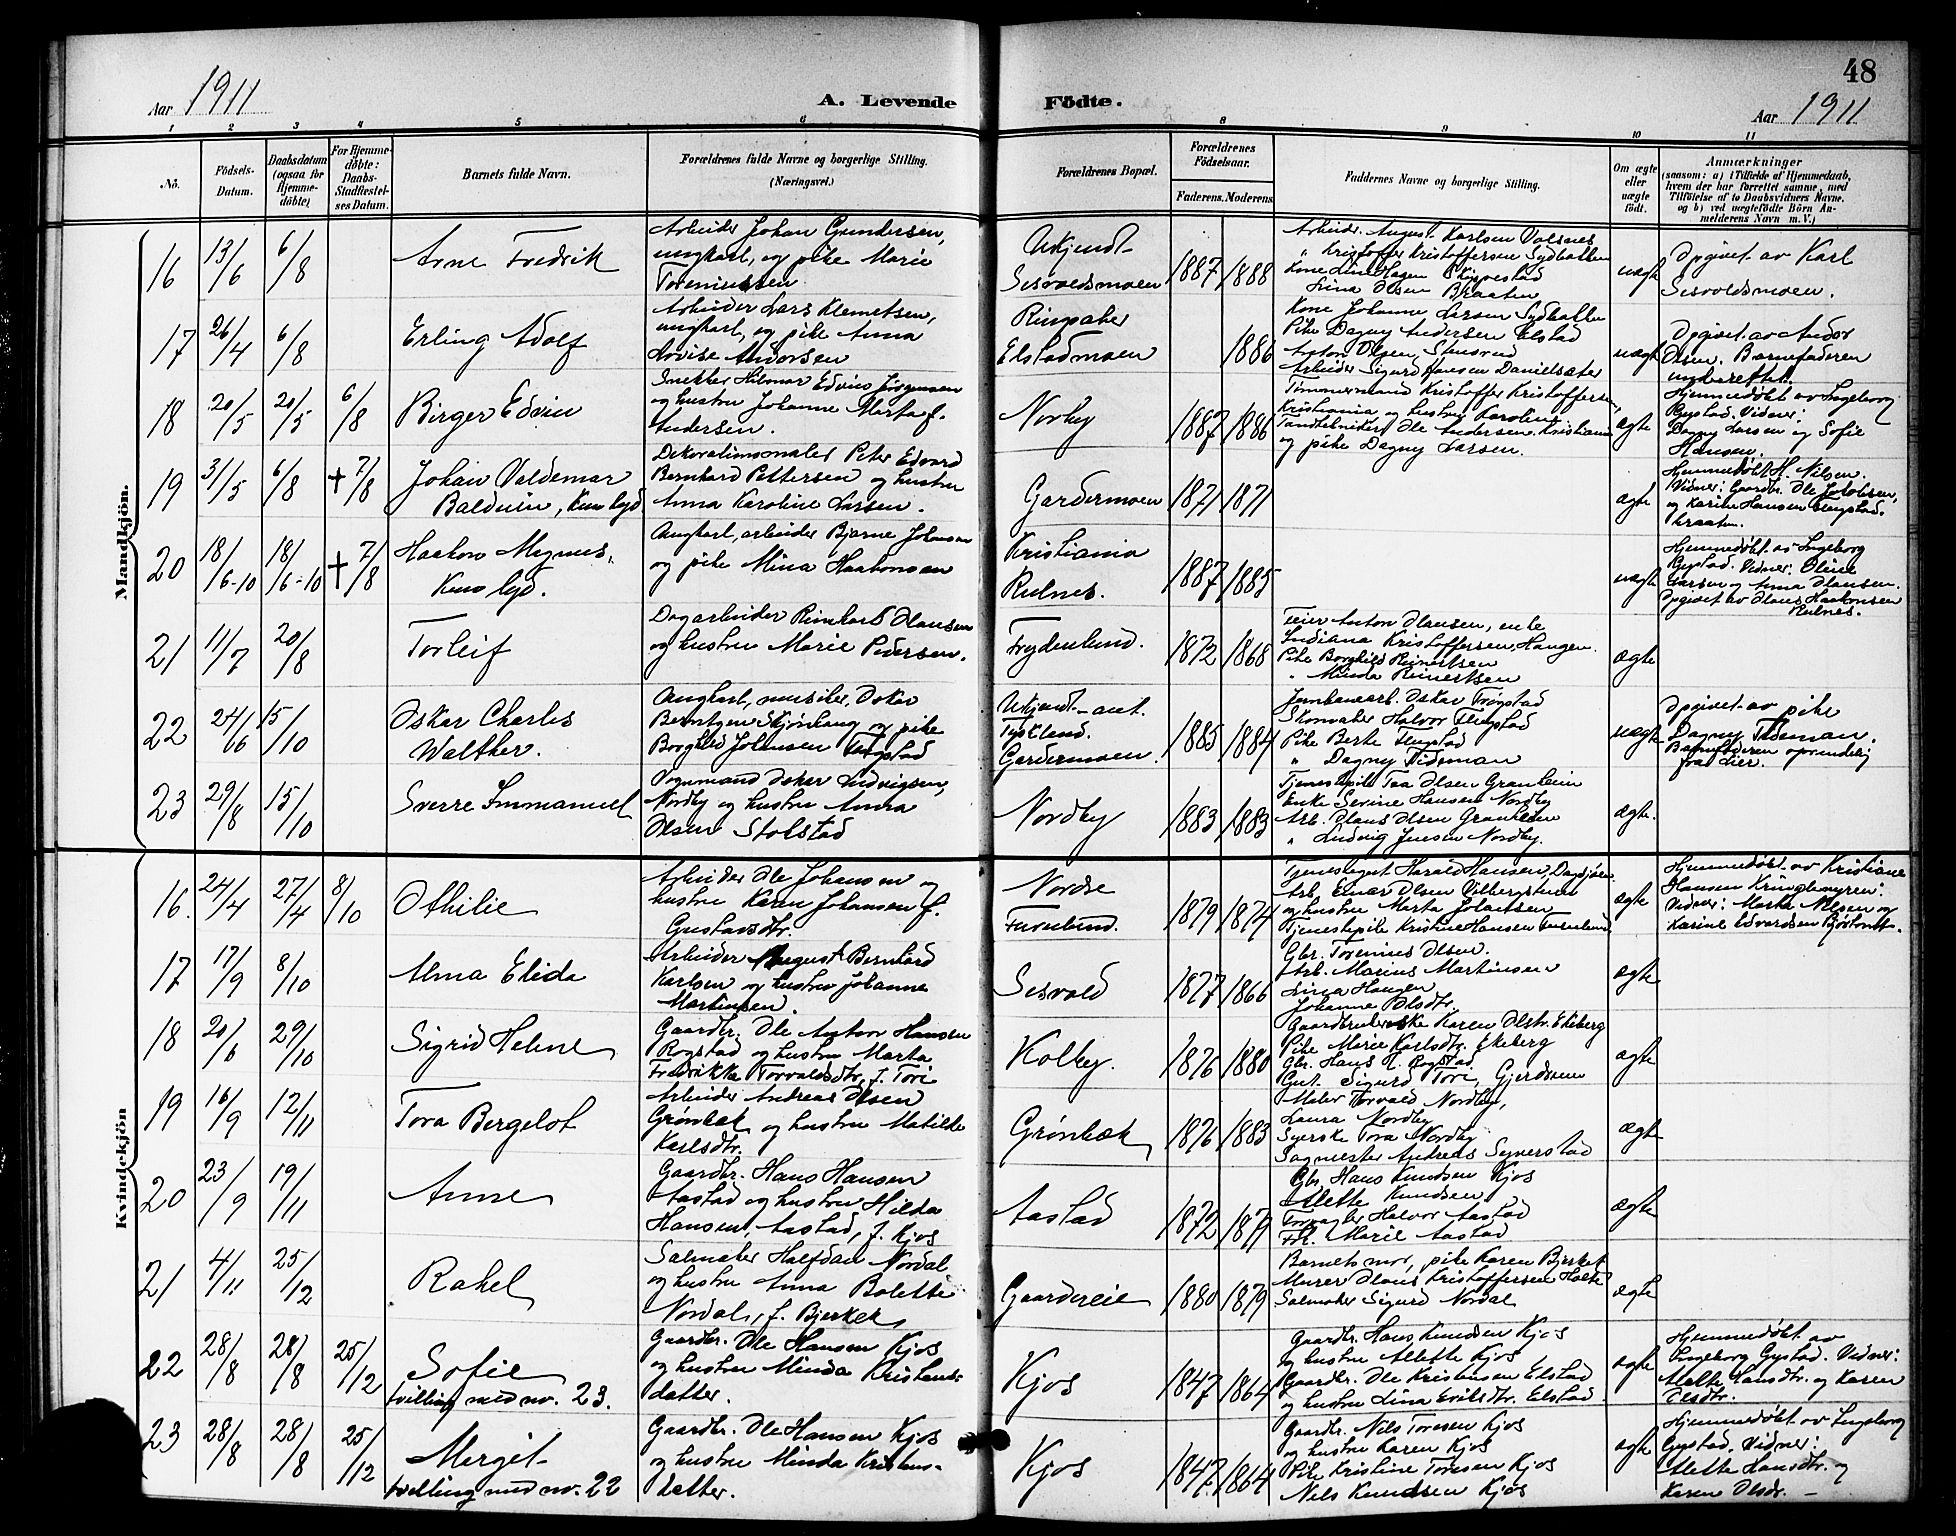 48
Aar 1911
A. Levende
Födte.
Aar 1911
1 2 3 4 5 6 8 9 10 11
No.
Födsels-Datum.
Daabsdatum (ogsaa for Hjemmedöbte)
For Hjemmedöbte: Daabs-Stadfæstelses Datum.
Barnets fulde Navn.
Forældrenes fulde Navne og borgerlige Stilling.
(Næringsvei.)
Forældrenes Bopæl.
Forældrenes Födselsaar.
Faderens. Moderens
Faddernes Navne og borgerlige Stilling.
Om ægte eller uægte födt.
Anmærkninger
(saasom: a) i Tilfælde af Hjemmedaab,
hvem der har forrettet samme, med
Tilföielse af to Daabsvidners Navne.
og b) ved uægtefödte Börn Anmelderens Navn m. V.)
Mandkjön.
16
13/6
6/8
Arne Fredrik
Arbeider Johan Gundersen,
ungkarl, og pike Marie
Toreniussen
Ukjendt-
Sesvoldsmoen
1887
1888
Arbeider August Karlsen Volsnes
" Kristoffer Kristoffersen Sydbakken
Kone Lina Hagen Skippestad
Lina Olsen Braaten
uægte
Opgivet av Karl
Sesvoldsmoen.
17
26/4
6/8
Erling Adolf
Arbeider Lars Klemetsen,
ungkarl, og pike Anna
Lovise Andorsen
Ringsaker
Elstadmoen
1886
Kone Johanne Larsen Sydbakken
Pike Dagny Andersen Elstad
Anton Olsen, Stensrud
Arbeider Sigurd Hansen Danielsæter
uægte
Opgivet av Andor
Olsen. Barnefaderen
underrettet.
18
20/5
20/5
6/8
Birger Edvin
Snekker Hilmar Edvin Jørgensen
og hustru Johanne Marta f.
Andersen.
Norby
1887
1886
Tømmermand Kristoffer Kristoffersen,
Kristiania og hustru Karoline
Tandtekniker Ole Andersen, Kristiania
og pike Dagny Larsen.
ægte
Hjemmedøbt av Ingeborg
Gystad. Vidner:
Dagny Larsen og Sofie
Hansen.
19
31/5
6/8
+ 7/8
Johan Valdemar
Balduin, Kun lyd
Dekorationsmaler Peter Edvard
Bernhard Pettersen og hustru
Anna Karoline Larsen.
Gardermoen
1871
1871
ægte
Hjemmedøbt H. Nilsen.
Vidner: Gaardbr. Ole Jakobsen,
og Karine Hansen Flugstad.
braaten.
20
18/6-10
18/6-10
+ 7/8
Haakon Magnus,
Kun lyd.
Ungkarl, arbeider Bjarne Johansen
og pike Mina Haakonsen
Kristiania
Rudnes.
1887
1885
uægte
Hjemmedøbt av Ingeborg
Gystad. Vidner: Oline
Larsen og Anna Olausen.
Opgivet av Olaus Haakonsen
Rudnes.
21
11/7
20/8
Torleif
Dagarbeider Reinhard Olausen
og hustru Marie Pedersen.
Frydenlund.
1872
1868
Feier Anton Olausen, enke
Indiana Kristoffersen, Haugen.
Pike Borghild Reinertsen
" Minda Reinertsen
ægte
22
24/6
15/10
Oskar Charles
Walther.
Ungkarl, musiker, Oskar
Berntzen Skjønhaug og pike
Borghild Johansen Trøgstad
Ukjendt-ant.
Tyskland.
Gardermoen.
1885
1884
Jernbanearb. Oskar Trøgstad
Skomaker Halvor Flugstad
Pike Berte Flugstad
" Dagny Tideman
uægte
Opgivet av pike
Dagny Tideman.
Barnefaderen oprindelig
fra Lier.
23
29/8
15/10
Sverre Immanuel
Vognmand Oskar Ludvigsen,
Nordby og hustru Anna
Olsen Stolstad
Nordby
1883
1883
Tjenestepike Tea Olsen Granheim
Enke Sevine Hansen Nordby
Arb. Olaus Olsen Granheim
" Ludvig Jensen Nordby.
ægte.
Kvindekjön
16.
24/4
27/4
8/10
Othilie
Arbeider Ole Johansen og
hustru Karen Johansen f.
Gustavsdtr.
Nordre
Furulund.
1879
1874
Tjenestegut Harald Hansen, Dagsjøen
Arb. Einar Olsen Vilbergstuen
og hustru Marta Johansen
Tjenestepike Kristine Hansen Furulund
ægte
Hjemmedøbt av Kristiane
Hansen Kringlemyren.
Vidner: Marte Nilsen og
Karine Edvardsen Bjørtomt.
17
17/9
8/10
Alma Elida
Arbeider August Bernhard
Karlsen og hustru Johanne
Martinsen.
Sesvold
1877
1866
Gbr. Torenius Olsen.
Arb. Marius Martinsen
Lina Haugen
Johanne Olsdtr.
ægte
18
20/6
29/10
Sigrid Helene
Gaardbr. Ole Anton Hansen
Rogstad og hustru Marta
Fredrikke Torvaldsdtr, f. Tori
Kolby.
1876
1880
Gaardbrukerske Karen Olstr. Ekeberg
Pike Marie Karlsdtr. Ekeberg
Gbr. Hans H. Rogstad
Gut. Sigurd Tori, Gjerdrum
ægte
19
16/9
12/11
Tora Bergelot
Arbeider Andreas Olsen
Grønbæk og hustru Matilde
Karlsdtr.
Grønbæk
1876
1883
Maler Torvald Nordby,
Laura Nordby
Syerske Tora Nordby
Sagmester Andreas Synerstad
ægte
20
23/9
19/11
Anne
Gaardbr. Hans Hansen
Aastad og hustru Hilda
Hansen, Aastad, f. Kjos
Aastad
1872
1877
Gbr. Hans Knudsen Kjos
Alette Knudsen
Forvalter Halvor Aastad
Frk. Marie Aastad
ægte
21
4/11
25/12
Rakel
Salmaker Halfdan Nordal
og hustru Anna Bolette
Nordal, f. Bjerkek
Gaardereie
1880
1879
Barnets mor, pike Karen Bjerkek
Murer Olaus Kristoffersen Holte
Salmaker Sigurd Nordal
ægte
22
28/8
28/8
25/12
Sofie
tvilling med nr. 23.
Gaardbr. Ole Hansen Kjos
og hustru Minda Kristens-
datter.
Kjos
1847
1864
Gaardbr. Hans Knudsen Kjos
og hustru Alette Kjos
Gaardbr. Ole Kristensen Elstad
og hustru Lina Eriksdtr. Elstad
ægte
Hjemmedøbt av
Ingeborg Gystad. Vidner:
Alette Hansdtr. og Karen
Olsdtr.
23
28/8
28/8
25/12
Mergit
tvilling med nr. 22
Gaardbr. Ole Hansen Kjos
og hustru Minda Kristens-
datter.
Kjos
1847
1864
Gaardbr. Nils Toresen Kjos
og hustru Karen Kjos
Pike Kristine Toresen Kjos
Nils Knudsen Kjos
ægte
Hjemmedøbt av Ingeborg
Gystad. Vidner:
Alette Hansdtr. og
Karen Olsdr. —